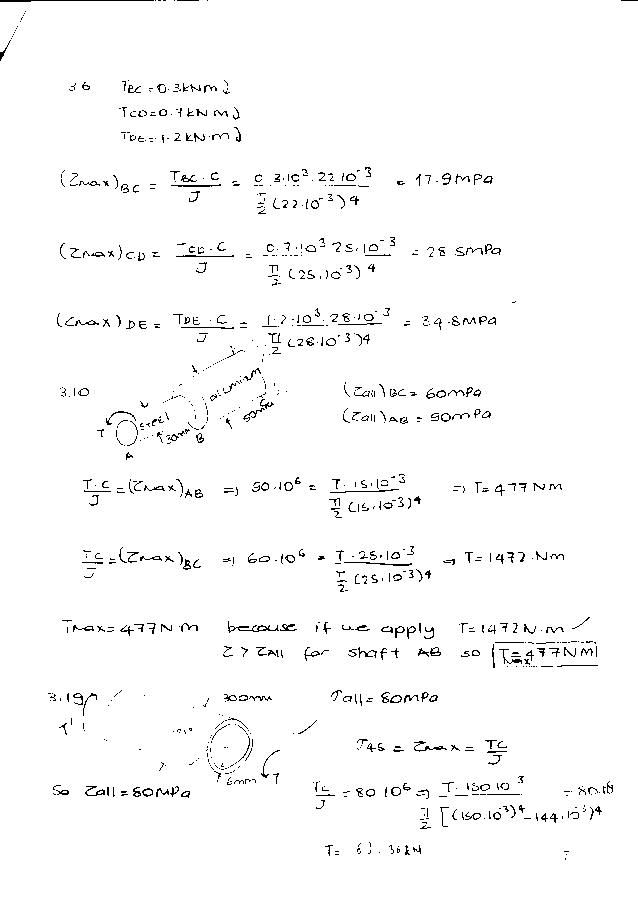 3.6 T_BC = 0.3 kN m
T_CD = 0.7 kN m
T_DE = 1.2 kN.m
(τmax)_BC = T_BC . C / J = 0.3.10^3 . 22.10^-3 / π/2 (22.10^-3)^4 = 17.9 MPa
(τmax)_CD = T_CD . C / J = 0.7.10^3 25.10^-3 / π/2 (25.10^-3)^4 = 28.5 MPa
(τmax)_DE = T_DE . C / J = 1.2.10^3 . 28.10^-3 / π/2 (28.10^-3)^4 = 34.8 MPa
3.10
(τall)_BC = 60 MPa
(τall)_AB = 50 MPa
T steel aluminium
A 30mm B 50mm C
T.C / J = (τmax)_AB => 50.10^6 = T.15.10^-3 / π/2 (15.10^-3)^4 => T = 477 Nm
TC / J = (τmax)_BC => 60.10^6 = T.25.10^-3 / π/2 (25.10^-3)^4 => T = 1472.Nm
Tmax = 477 N m because if we apply T = 1472 N.m
τ > τall for shaft AB so Tmax = 477 N m
3.19 300mm τall = 80 MPa
T
τ45 = τmax = TC / J
6mm T
So τall = 80 MPa
TC / J = 80.10^6 => T.150.10^-3 / π/2 [(150.10^-3)^4 - 144.10^-3)^4
T =